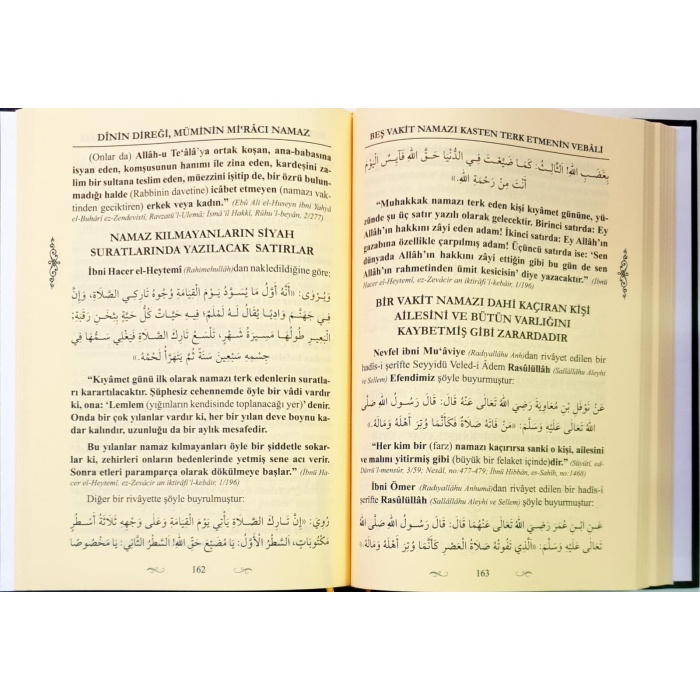 DİNİN DİREĞİ, MÜMİNİN Mİ‘RÂCI NAMAZ
(Onlar da) Allâh-u Te‘âlâ’ya ortak koşan, ana-babasına
isyan eden, komşusunun hanımı ile zina eden, kardeşini za-
lim bir sultana teslim eden, müezzini işitip de, bir özrü bulun-
madığı halde (Rabbinin davetine) icâbet etmeyen (namazı vak-
tinden geciktiren) erkek veya kadın.” (Ebû Ali el-Huseyn ibni Yahyâ
el-Buhârî ez-Zendevistî, Ravzatü’l-Ulemâ; İsmâ‘îl Hakkî, Rûhu’l-beyân, 2/277)
NAMAZ KILMAYANLARIN SİYAH
SURATLARINDA YAZILACAK SATIRLAR
İbni Hacer el-Heytemî (Rahimehullâh)dan nakledildiğine göre:
وَيُرْوَى: «أَنَّهُ أَوَّلُ مَا يُسَوَّدُ يَوْمَ الْقِيَامَةِ وُجُوهُ تَارِكِي الصَّلَاةِ، وَإِنَّ
فِي جَهَنَّمَ وَادِيًا يُقَالُ لَهُ لَمْلَمُ؛ فِيهِ حَيَّاتٌ كُلُّ حَيَّةٍ بِثَخَنِ رَقَبَةِ
الْبَعِيرِ طُولُهَا مَسِيرَةُ شَهْرٍ، تَلْسَعُ تَارِكَ الصَّلَاةِ فَيَغْلِي سَمُّهَا فِي
جِسْمِهِ سَبْعِينَ سَنَةً ثُمَّ يَتَهَرَّأُ لَحْمُهُ.»
“Kıyâmet günü ilk olarak namazı terk edenlerin suratla-
rı karartılacaktır. Şüphesiz cehennemde öyle bir vâdi vardır
ki, ona: ‘Lemlem (yığınların kendisinde toplanacağı yer)’ denir.
Onda bir çok yılanlar vardır ki, her bir yılan deve boynu ka-
dar kalındır, uzunluğu da bir aylık mesafedir.
Bu yılanlar namaz kılmayanları öyle bir şiddetle sokar-
lar ki, zehirleri onların bedenlerinde yetmiş sene acı verir.
Sonra etleri paramparça olarak dökülmeye başlar.” (İbnü Ha-
cer el-Heytemî, ez-Zevâcir an iktirâfi’l-kebâir, 1/196)
Diğer bir rivâyette şöyle buyrulmuştur:
رُوِيَ: «إِنَّ تَارِكَ الصَّلَاةِ يَأْتِي يَوْمَ الْقِيَامَةِ وَعَلَى وَجْهِهِ ثَلَاثَةُ أَسْطُرٍ
مَكْتُوبَاتٍ، السَّطْرُ الْأَوَّلُ: يَا مُضَيِّعَ حَقِّ اللهِ! السَّطْرُ الثَّانِي: يَا مَخْصُوصًا
162
BEŞ VAKİT NAMAZI KASTEN TERK ETMENİN VEBÂLİ
بِغَضَبِ اللهِ! الثَّالِثُ: كَمَا ضَيَّعْتَ فِي الدُّنْيَا حَقَّ اللهِ فَآيِسٌ الْيَوْمَ
أَنْتَ مِنْ رَحْمَةِ اللهِ.»
“Muhakkak namazı terk eden kişi kıyâmet gününe, yü-
zünde şu üç satır yazılı olarak gelecektir. Birinci satırda: Ey
Allâh’ın hakkını zâyi eden adam! İkinci satırda: Ey Allâh’ın
gazabına özellikle çarpılmış adam! Üçüncü satırda ise: ‘Sen
dünyada Allâh’ın hakkını zâyi ettiğin gibi bu gün de sen
Allâh’ın rahmetinden ümit kesicisin’ diye yazacaktır.” (İbnü
Hacer el-Heytemî, ez-Zevâcir an iktirâfi’l-kebâir, 1/196)
BİR VAKİT NAMAZI DAHİ KAÇIRAN KİŞİ
AİLESİNİ VE BÜTÜN VARLIĞINI
KAYBETMİŞ GİBİ ZARARDADIR
Nevfel ibni Mu‘âviye (Radıyallâhu Anh)dan rivâyet edilen bir
hadîs-i şerîfte Seyyidü Veled-i Âdem Rasûlüllâh (Sallâllâhu Aleyhi
ve Sellem) Efendimiz şöyle buyurmuştur:
عَنْ نَوْفَلِ بْنِ مُعَاوِيَةَ رَضِيَ اللهُ عَنْهُ قَالَ: قَالَ رَسُولُ اللهِ صَلَّى
اللهُ تَعَالَى عَلَيْهِ وَسَلَّمَ: «مَنْ فَاتَتْهُ صَلَاةٌ فَكَأَنَّمَا وُتِرَ أَهْلَهُ وَمَالَهُ.»
“Her kim bir (farz) namazı kaçırırsa sanki o kişi, ailesini
ve malını yitirmiş gibi (büyük bir felaket içinde)dir.” (Süyûtî, ed-
Dürrü’l-mensûr, 3/59; Nesâî, no:477-479; İbni Hibbân, es-Sahîh, no:1468)
İbni Ömer (Radıyallâhu Anhumâ)dan rivâyet edilen bir hadîs-i
şerîfte Rasûlüllâh (Sallâllâhu Aleyhi ve Sellem) şöyle buyurmuştur:
عَنِ ابْنِ عُمَرَ رَضِيَ اللهُ تَعَالَى عَنْهُمَا قَالَ: قَالَ رَسُولُ اللهِ صَلَّى اللهُ
تَعَالَى عَلَيْهِ وَسَلَّمَ: «الَّذِي تَفُوتُهُ صَلَاةُ الْعَصْرِ كَأَنَّمَا وُتِرَ أَهْلَهُ وَمَالَهُ.»
163